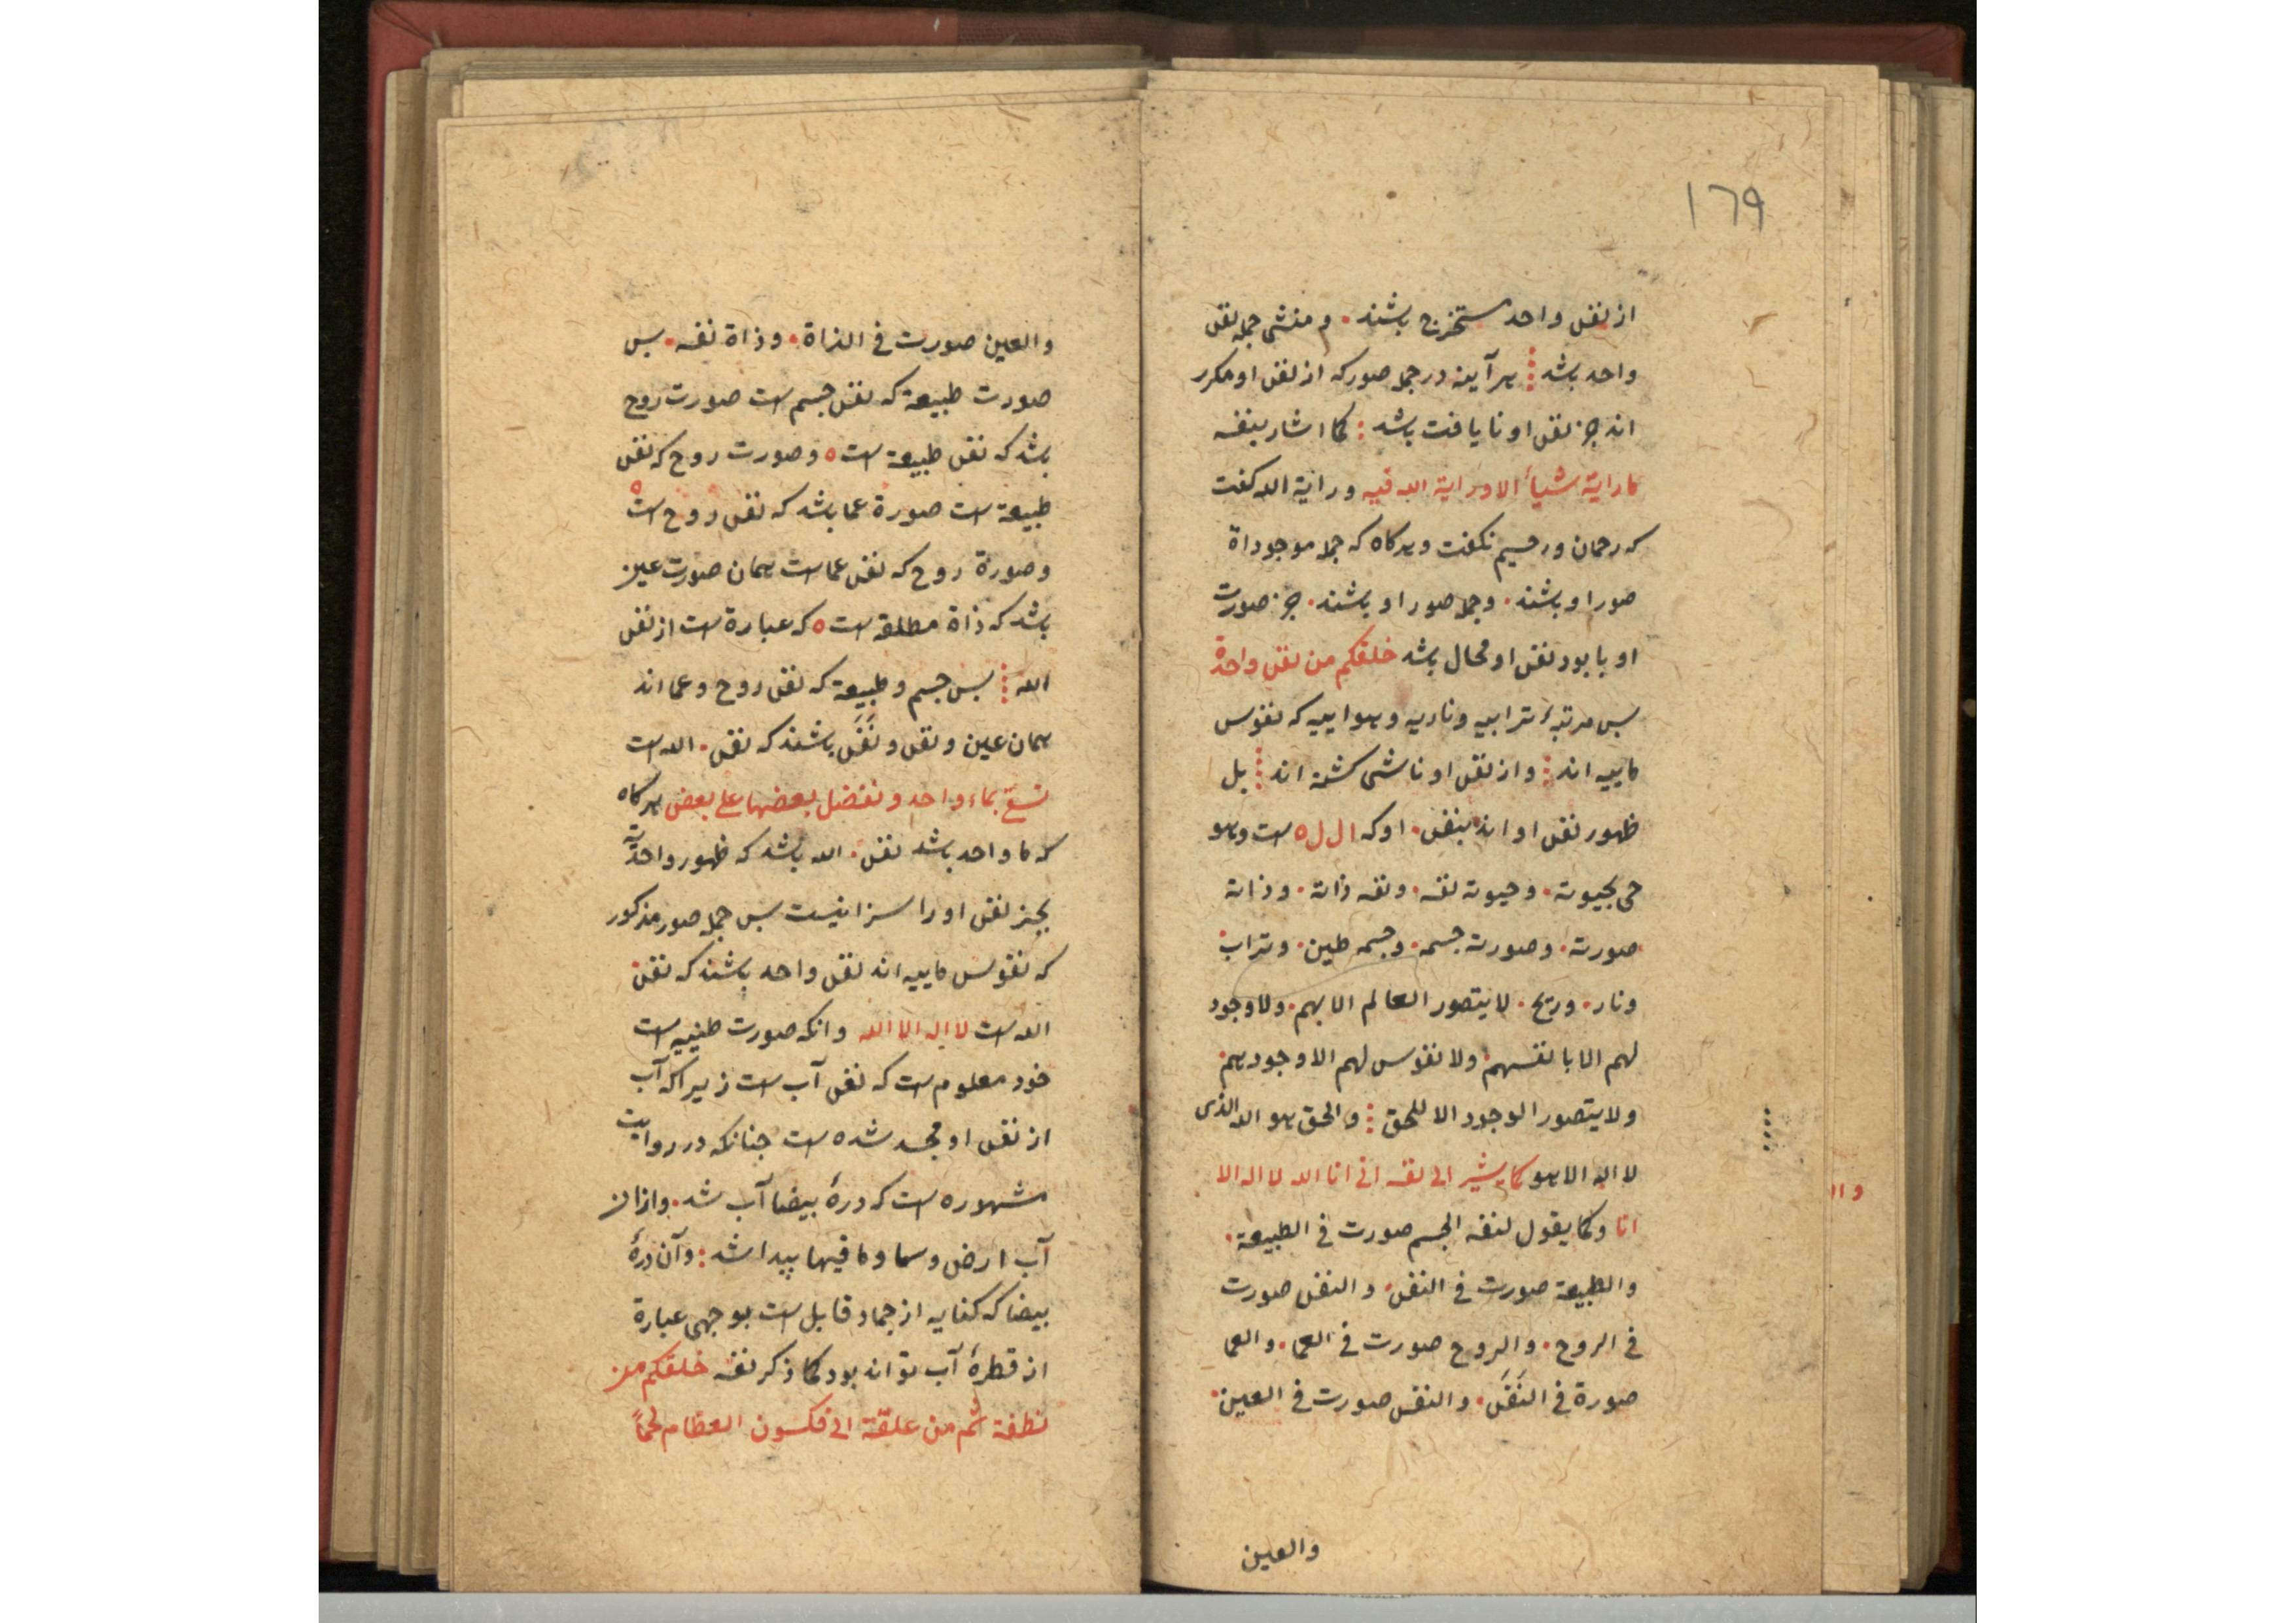 ١٦٩
از نفس واحد مستخرج باشند . و منشی جمله نفس
واحد باشد ⁝ هر آینه در جمله صور که از نفس او مکرر
اند جز نفس او نا یافت باشد : کما اشار بنفسه
ما رایة شیأ الا و رایة الله فیه و رایة الله کفت
که رحمان و رحیم نکفت و هرکاه که جمله موجوداة
صور او باشند . و جمله صور او باشند . جز صورت
او با بود نفس او محال باشد خلقکم من نفس واحدة
بس مرتبهٔ ترابیه و ناریه و هواییه که نفوس
ماییه اند ⁝ و از نفس او ناشی کشته اند ⁝ بل
ظهور نفس او اند بنفس . او که ال ل ه است و هو
حی بحیوته . و حیوته نفسه . و نفسه ذاته . و ذاته
صورته . و صورته جسمه . و جسمه طین . و تراب
و نار . و ریح . لا یتصور العالم الا بهم . و لا وجود
لهم الا بانفسهم و لا نفوس لهم الا وجودهم
و لا یتصور الوجود الا للحق ⁝ و الحق هو الله الذی
لا اله الا هو کما یشیر الی نفسه انی انا الله لا اله الا
انا و کما یقول لنفسه الجسم صورت فی الطبیعة .
و الطبیعة صورت فی النفس . و النفس صورت
فی الروح . و الروح صورت فی العما . و العما
صورة فی النَفَس . و النفس صورت فی العین .
والعین
والعین صورت فی الذاة . و ذاة نفسه . بس
صورت طبیعة که نفس جسم است صورت روح
باشد که نفس طبیعة است ه و صورت روح که نفس
طبیعة است صورة عما باشد که نفس روح است ه
و صورة روح که نفس عما است همان صورت عین
باشد که ذاة مطلقه است ه که عبارة است از نفس
الله ⁝ بس جسم و طبیعة که نفس روح و عما اند
همان عین و نفس و نَفَس باشند که نفس . الله است
تسقی بماء واحد و نفضل بعضها علی بعض هرکاه
که ما واحد باشد نفس . الله باشد که ظهور واحدیة
بجز نفس او را سزا نیست بس جمله صور مذکور
که نفوس ماییه اند نفس واحد باشند که نفس
الله است لا اله الا الله و انکه صورت طینیه است
خود معلوم است که نفس آب است زیرا که آب
از نفس او مجسد شده است جنانکه در روایت
مشهوره است که درهٔ بیضا آب شد . و از ان
آب ارض و سما و ما فیها پیدا شد : و آن درهٔ
بیضا که کنایه از جماد قابل است بوجهی عبارة
از قطرهٔ آب تواند بود کما ذکر نفسه خلقکم من
نطفة ثم من علقة الی فکسون العظام لحماً